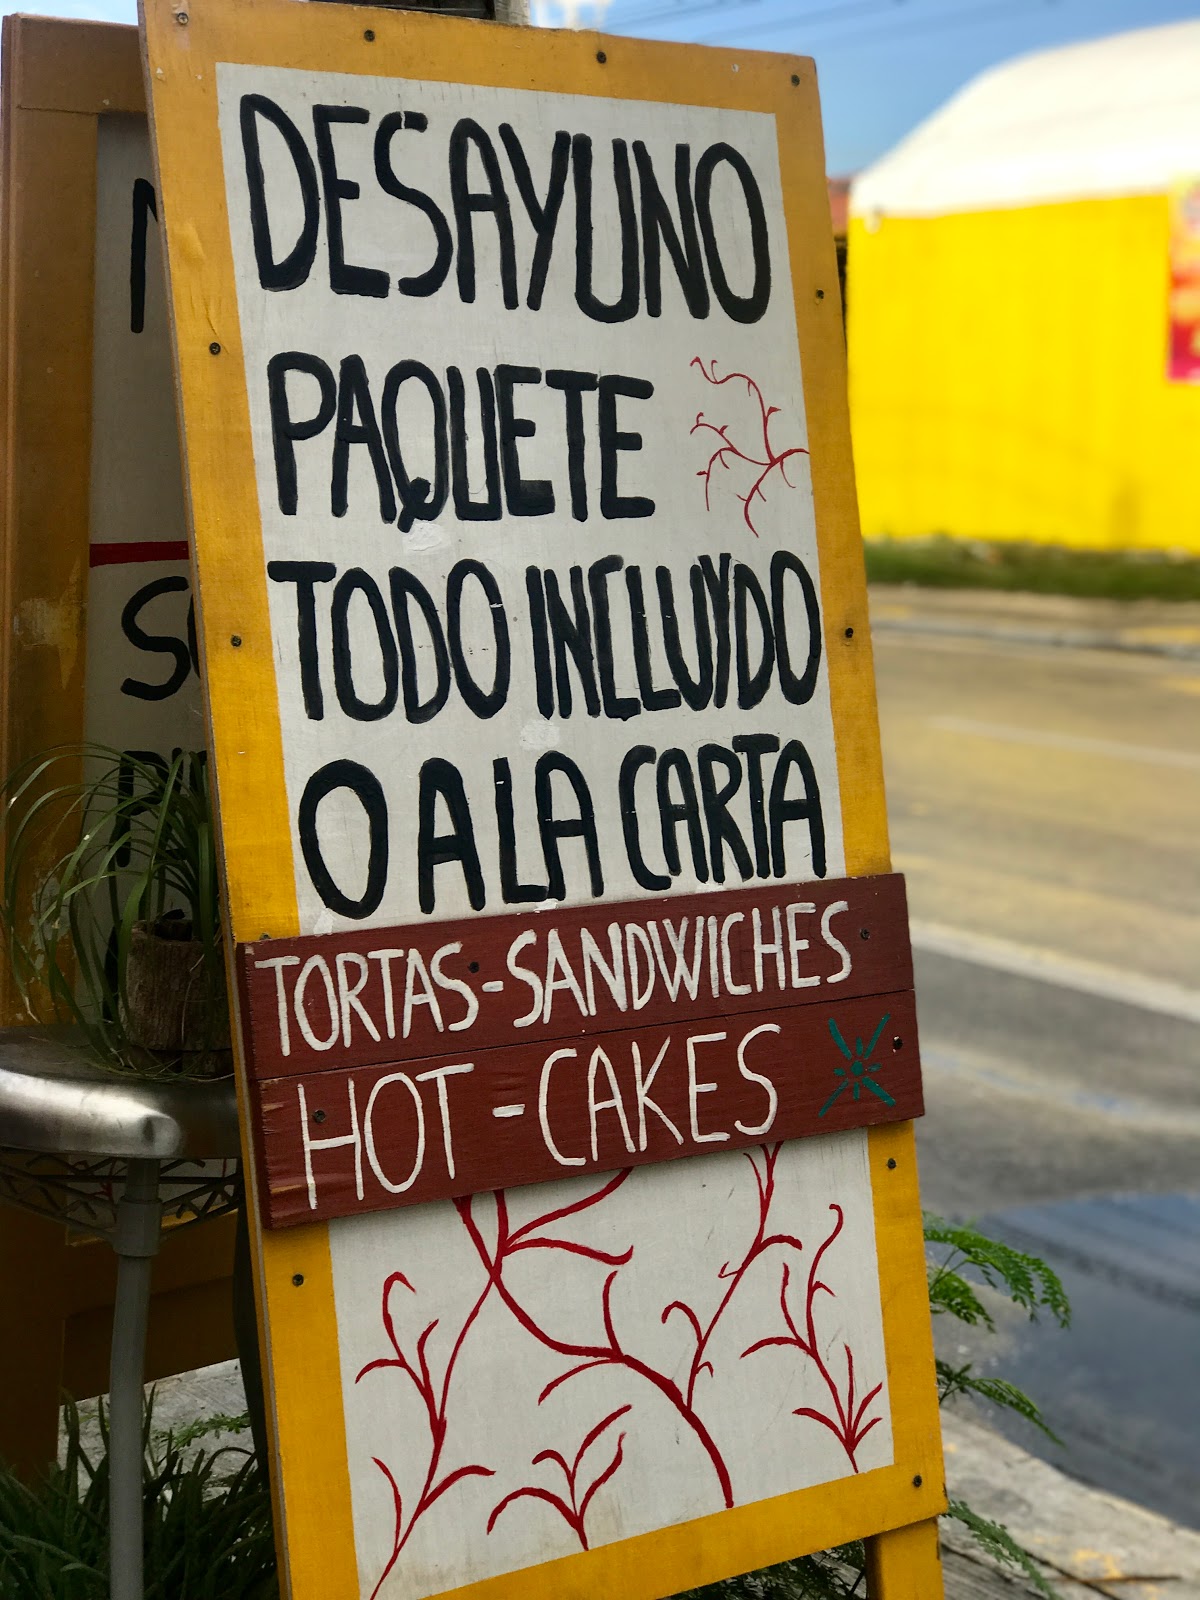 DESAYUNO
PAQUETE
TODO INCLUYDO
O A LA CARTA
TORTAS-SANDWICHES
HOT-CAKES